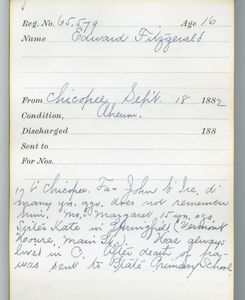 Reg. No. 65,579 Age 16
Name Edward Fitzgerald
From Chicopee, Sept. 18 1882
Condition, Rheum.
Discharged 188
Sent to
For Nos.
Chicopee. Fa- John b Ire, d
many yrs. ago, does not remember
him. Mo. Margaret 15 yrs. ago,
Sister Kate in Springfield (Vermont
House, Main St. Has always
lived in C. After death of
was sent to State Primary School.